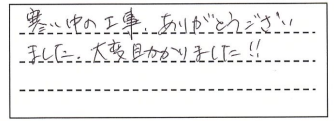 寒い中の工事、ありがとうござい
ました。大変目かかりました!!